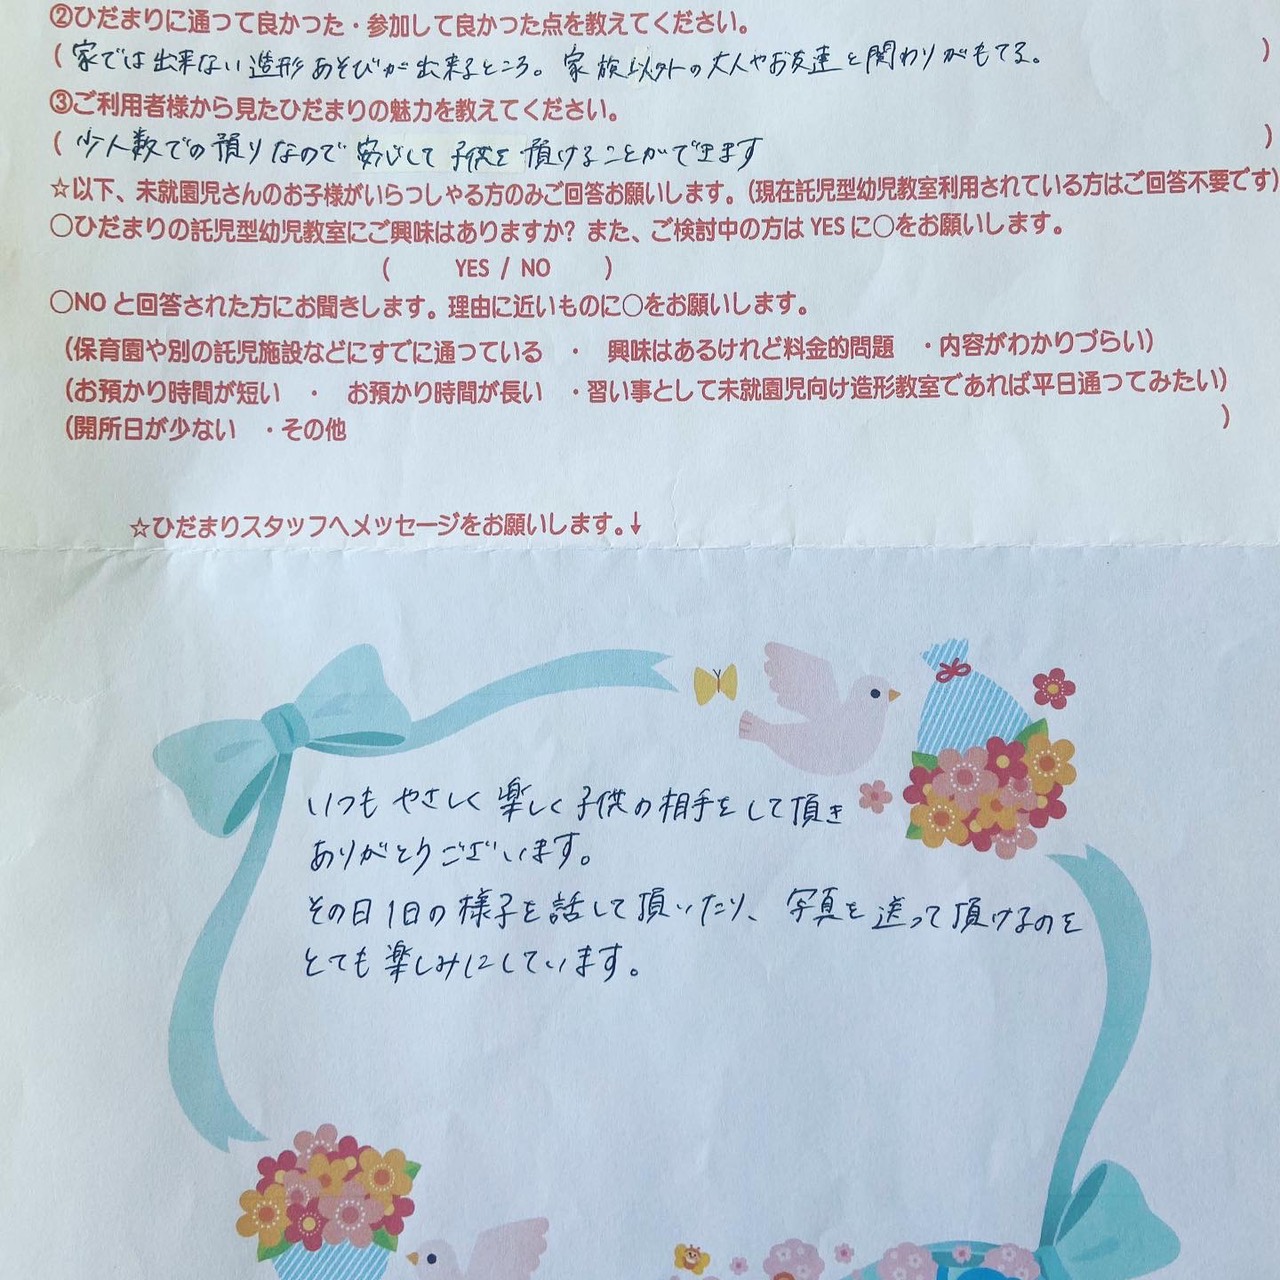 ②ひだまりに通って良かった・参加して良かった点を教えてください。
( 家では出来ない造形あそびが出来るところ。家族以外の大人やお友達と関わりがもてる。 )
③ご利用者様から見たひだまりの魅力を教えてください。
( 少人数での預りなので安心して子供を預けることができます )
☆以下、未就園児さんのお子様がいらっしゃる方のみご回答お願いします。(現在託児型幼児教室利用されている方はご回答不要です)
○ひだまりの託児型幼児教室にご興味はありますか? また、ご検討中の方は YES に○をお願いします。
( YES / NO )
○NO と回答された方にお聞きします。理由に近いものに○をお願いします。
(保育園や別の託児施設などにすでに通っている ・ 興味はあるけれど料金的問題 ・内容がわかりづらい)
(お預かり時間が短い ・ お預かり時間が長い ・習い事として未就園児向け造形教室であれば平日通ってみたい)
(開所日が少ない ・その他 )
☆ひだまりスタッフへメッセージをお願いします。↓
いつも やさしく 楽しく 子供の相手をして頂き
ありがとうございます。
その日1日の様子を話して頂いたり、写真を送って頂けるのを
とても楽しみにしています。